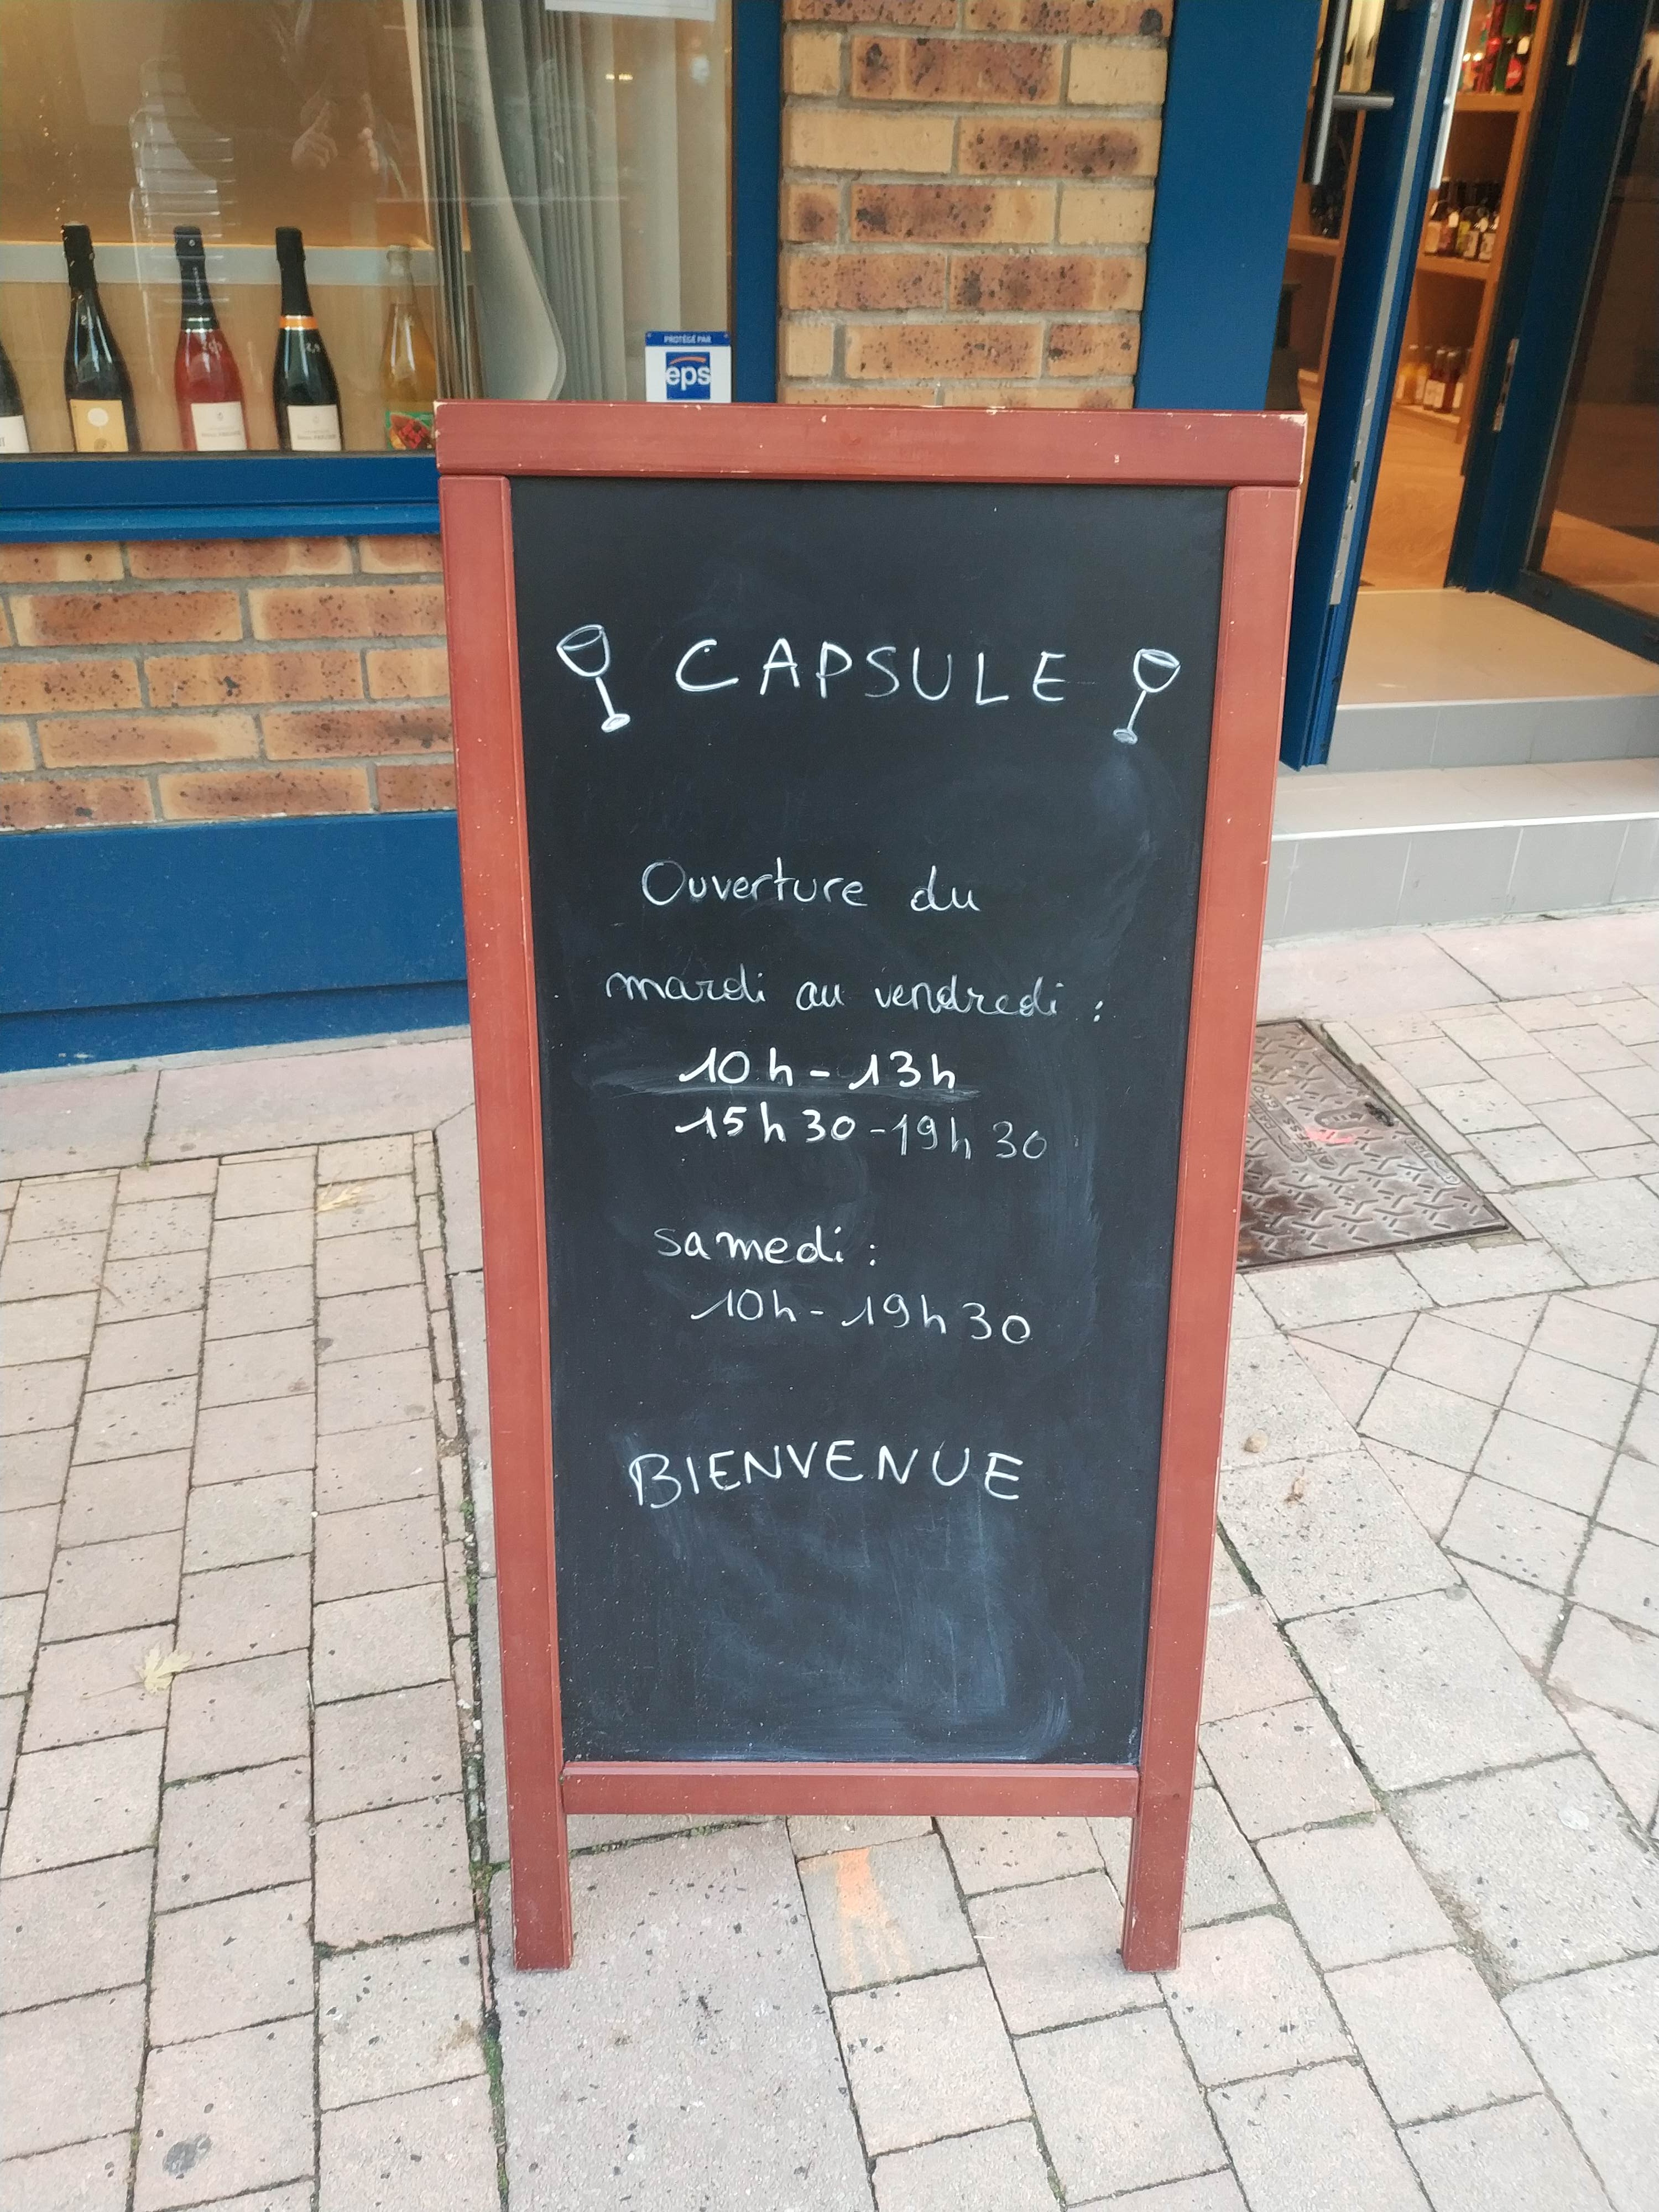 PROTÉGÉ PAR
eps
CAPSULE
Ouverture du
mardi au vendredi :
10h - 13h
15h30 - 19h30
samedi :
10h - 19h30
BIENVENUE